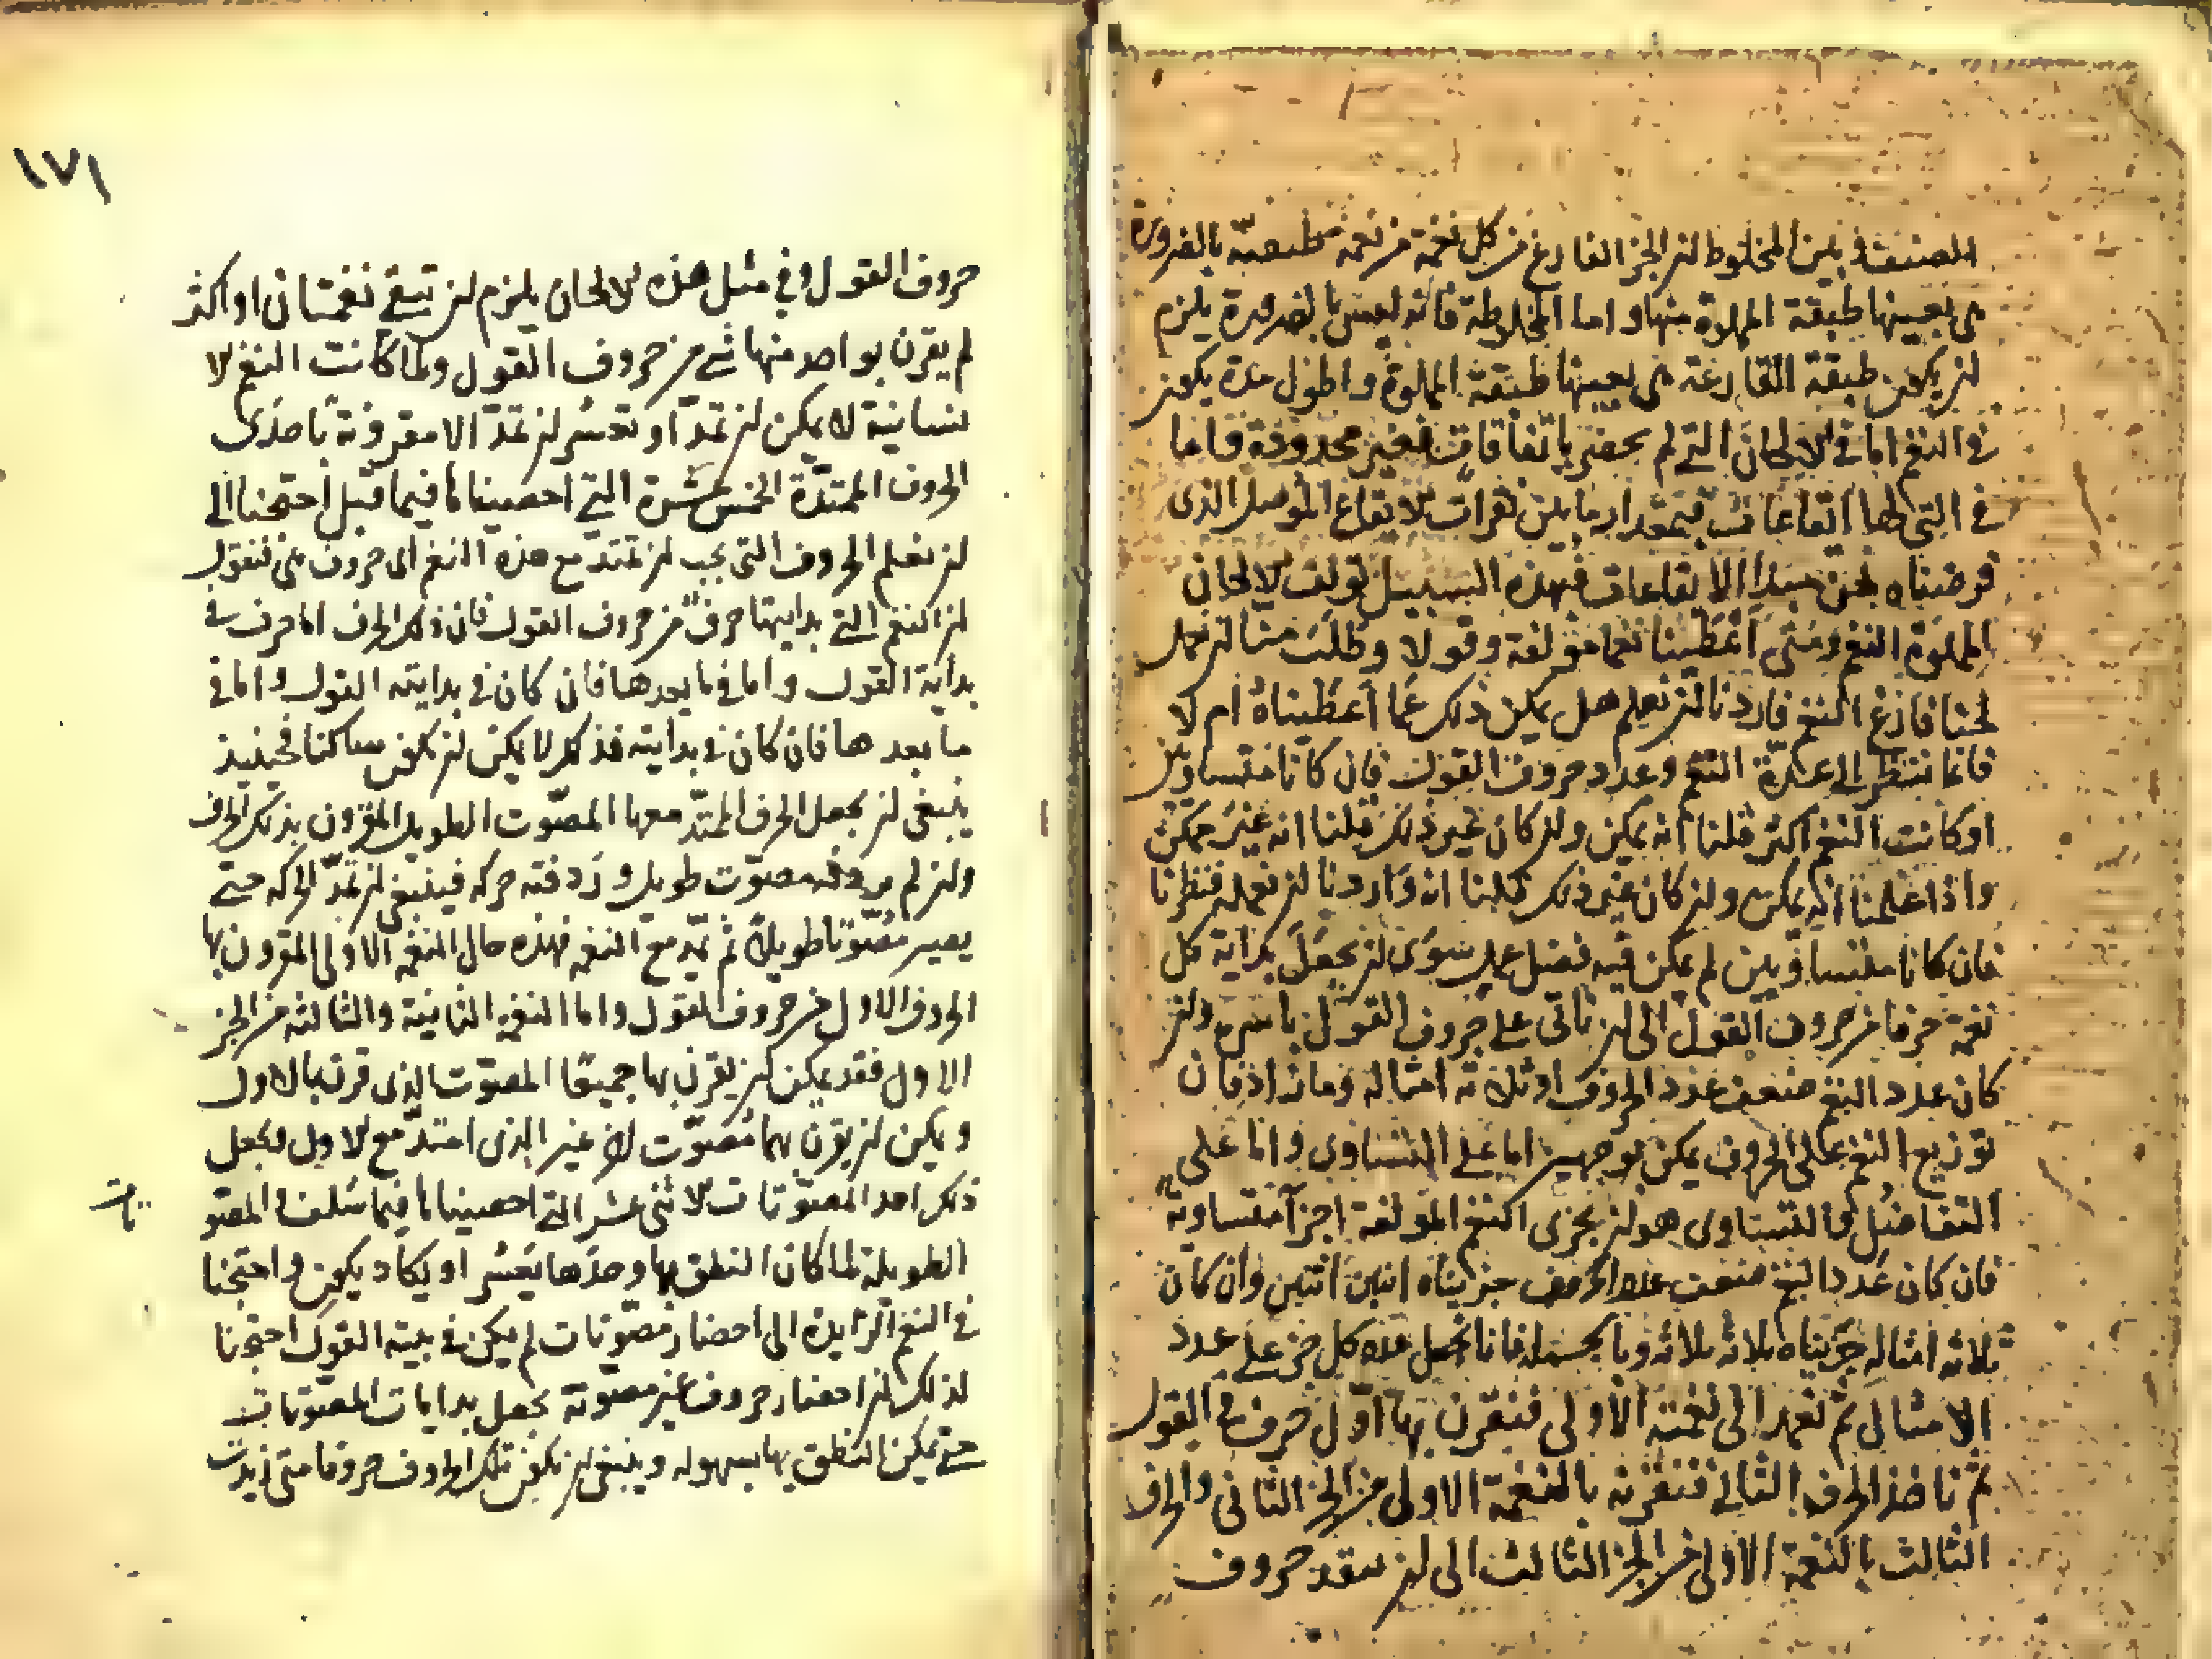 الصنفين بين المخلوط لنر الجز الفارغ من كل نغمة من نغمه طبعيّة بالضرورة
هى بعينها طبقة المملوة منها و اما المخلوطة فانه ليس بالضرورة يلزم
لنر يكون طبقة الفارغة هى بعينها طبقة المملوة و اطول مدة يكون
فى النغم اما فى الالحان التى لم بحصر باتفاقات لغير محدودة فاما
فى التى لها ايقاعات فبمقدار ما بين نقرات الايقاع الموصل الذى
فرضناه لحن مبدا الايقاعات فبهذه السبيل تولف الالحان
المملوة النغم ومتى اعطينا نغما مؤلفة وقولا وطلب منا لنر نعمل
لحنا فارغ النغم فاردنا لنر نعلم هل يمكن ذلك عما اعطيناه ام لا
فانا ننظر الى عدة النغم وعدد حروف القول فان كانا متساويين
او كانت النغم اكثر قلنا انه يمكن ولنر كان غير ذلك قلنا انه غير ممكن
واذا علمنا انه يمكن ولنر كان غير ذلك قلنا انه واردنا لنر نعمله فنظرنا
فان كانا متساويين لم يمكن فيه فضل عمل سوى لنر نجعل بداية كل
نغمة حرفا من حروف القول الى لنر ناتى على حروف القول باسره ولنر
كان عدد النغم ضعف عدد الحروف او ثلاثة امثاله وما زاد فان
توزيع النغم على الحروف يمكن بوجهين اما على التساوى واما على
التفاضل والتساوى هو لنر نجزى النغم المولفة اجزآ متساوية
فان كان عدد النغم ضعف عدد الحروف جزيناه اثنين اثنين وان كان
ثلاثه امثاله جزيناه ثلاثه ثلاثه وبالجملة فانا نجعل عدد كل جز على عدد
الامثال ثم نعمد الى نغمته الاولى فنقرن بها اول حرف فى القول
ثم ناخذ الحرف الثانى فنقرنه بالنغمة الاولى من الجز الثانى والحرف
الثالث بالنغمة الاولى من الجز الثالث الى لنر ينفد حروف
١٧١
حروف القول وفى مثل هذه الالحان يلزم لنر تبقى نغمتان او اكثر
لم يقرن بواحد منها شى من حروف القول ولما كانت النغم الا
نسانية لا يمكن لنر تمدّ او تعسر لنر تمدّ الا مقرونة باحدى
الحروف الممتدّة الخمس عشرة التى احصيناها فيما قبل احتجنا الى
لنر نعلم الحروف التى يجب لنر تمتد مع هذه النغم اى حروف هى فنقول
لنر النغم التى بدايتها حرف من حروف القول فان ذلك الحرف اما حرف فى
بداية القول واما فى ما بعدها فان كان فى بدايته القول و اما فى
ما بعدها فان كان فى بدايته فذلك لا يمكن لنر يكون ساكنا فحينيذ
ينبغى لنر يجعل الحرف الممتدّ معها المصوّت الطويل المقرون بذلك الحرف
ولنر لم يردفه مصوّت طويل و ردفته حركه فينبغى لنر تمدّ الحركه حتى
يصير مصوّتا طويلا ثم يمد مع النغمه فهذه حال النغمه الاولى المقرون بها
الحرف الاول من حروف القول واما النغمه الثانية والثالثه من الجز
الاول فقد يمكن لنر يقرن بها جميعا المصوّت الذى قرن بالاول
و يمكن لنر يقرن بهما مصوّت اخر غير الذى امتدّ مع الاول ويجعل
ذلك احد المصوّتات الاثنى عشر التى احصيناها فيما سلف و المصّو
تات
الطويلة لما كان النطق بها وحدها يعسر او يكاد يكون و احتجنا
فى النغم الزايدة الى احضار مصوّتات لم يكن فى بنية القول احتجنا
لذلك لنر احضار حروف غير مصوّتة يجعل بدايات المصوّتات
حتى يمكن النطق بها بسهوله وينبغى لنر تكون تلك الحروف حروفا متى زيدت